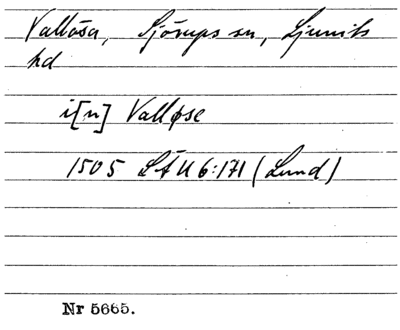 Vallösa, Sjörups sn, Ljunits
hd
i[n] Valløse
1505 LÄU 6:171 (Lund)
Nr 5665.